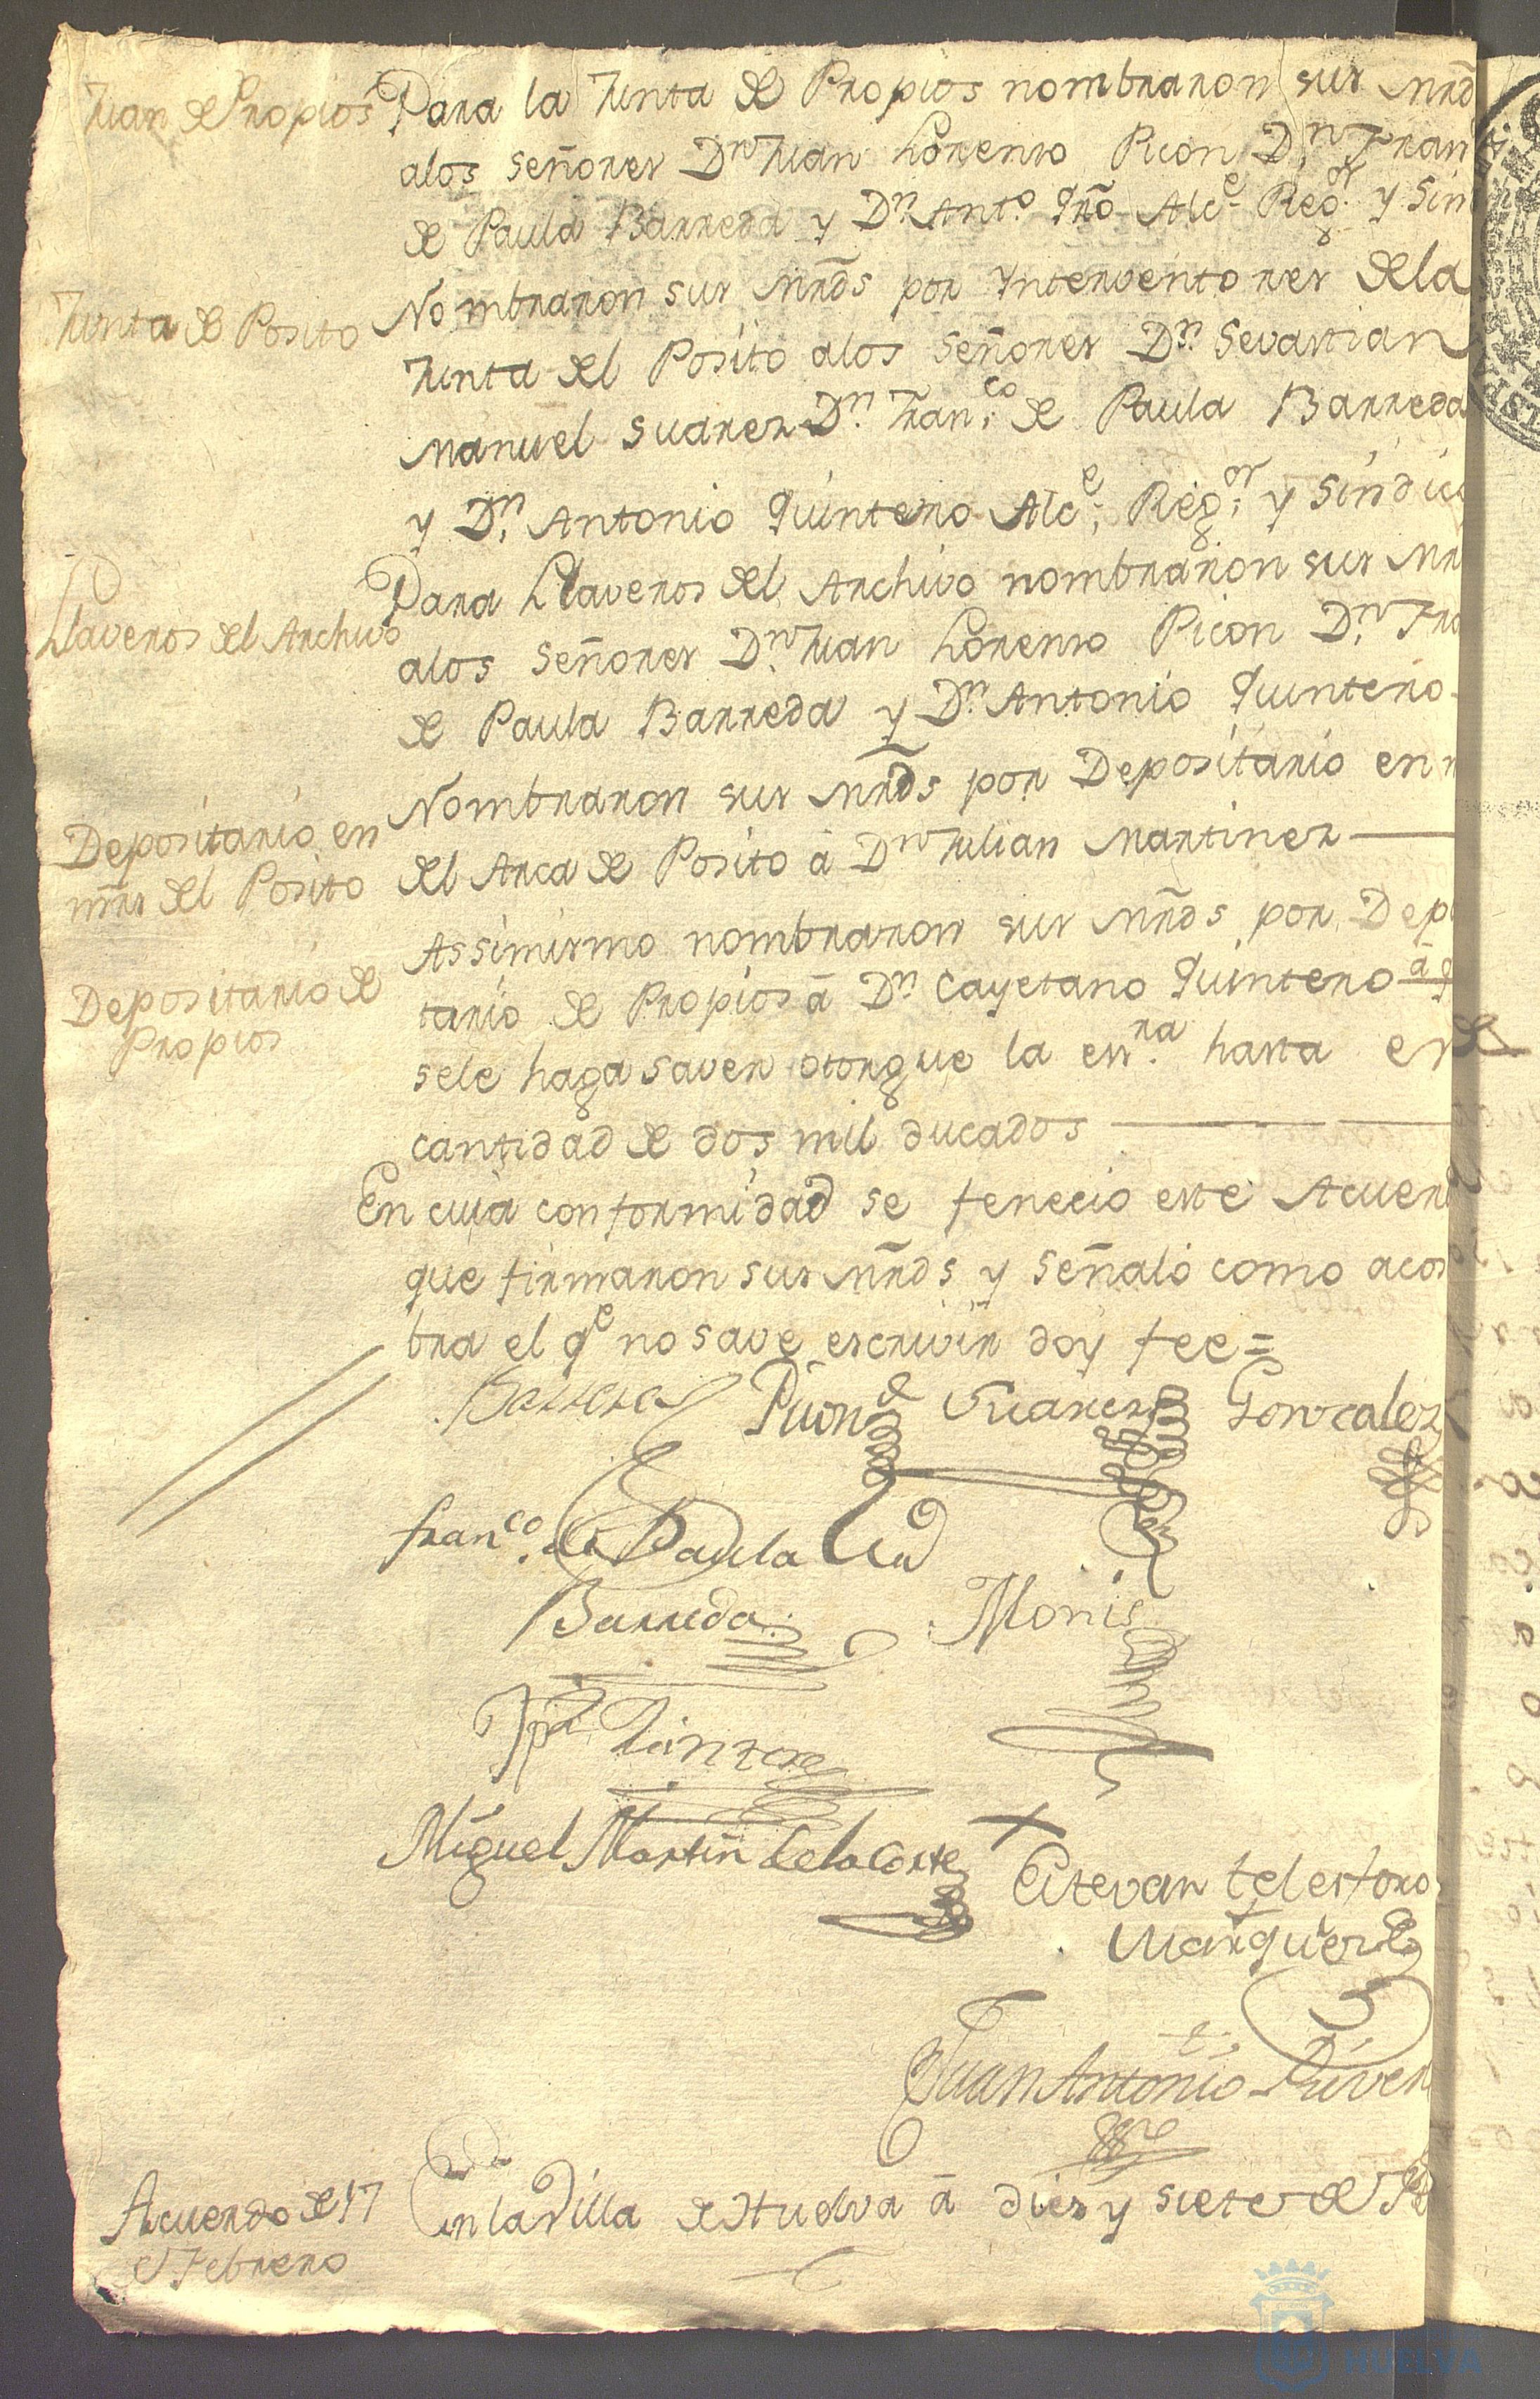 Juan de Propios
Para la Junta de Propios nombraron sus mrd
alos Señores Dn Juan Lorenso Picon Dn Fran
de Paula Barreda y Dn Anto. Qro Alce. Regor. y Sin
Junta de Posito
Nombraron sus mrds por Ynterventores dela
Junta del Posito alos Señores Dn. Sevastian
Manuel Suarez Dn. Franco. de Paula Barreda
y Dn. Antonio Quintero Alce. Regor. y Sindic
Llaveros del Archivo
Para Llaveros del Archivo nombraron sus mr
alos Señores Dn. Juan Lorenso Picon Dn. Fra
de Paula Barreda y Dn. Antonio Quintero
Depositario en
mrs del Posito
Nombraron sus mrds por Depositario en
del Arca de Posito á Dn Julian Martinez
Depositario de
Propios
Assimismo nombraron sus mrds por Dep
tario de Propios á Dn. Cayetano Quintero á q
sele haga saver otorgue la essra. hasta en
cantidad de dos mil ducados
En cuia conformidad se fenecio este Acuer
que firmaron sus mrds y Señaló como acos
bra el qe no save escrivir doy fee=
Barrera Picon Suarez Gonzalez
Franco. de Paula
Barreda Monis
Quintero
Miguel Martin dela Corte
Estevan telesforo
Marquez
Juan Antonio River
Acuerdo de 17
de Febrero
En la Villa de Huelva á dies y siete de Fe
HUELVA